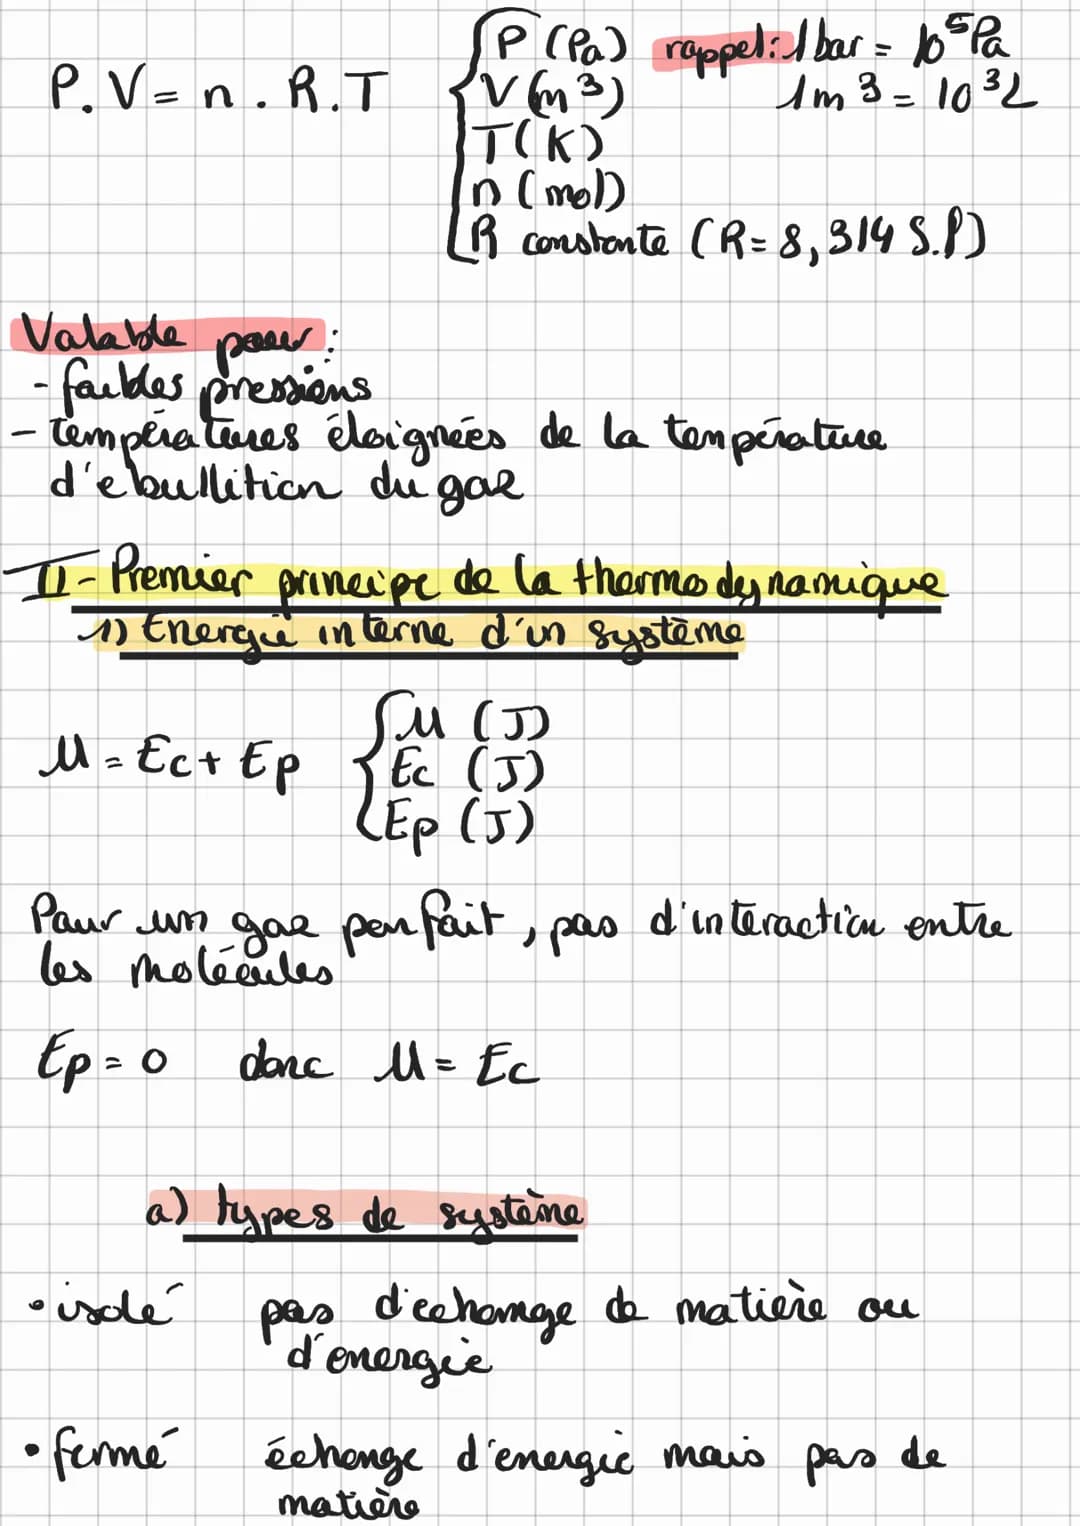 P.V = n.R.T
P (Pa) rappel: 1 bar = 10⁵Pa
V (m³) 1m³ = 10³L
T(K)
n (mol)
R constante (R= 8,314 S.I)
Valable pour:
- faibles pressions
- températures éloignées de la température
d'ebullition du gaz
II- Premier principe de la thermodynamique
1) Energie interne d'un système
U = Ec + Ep
U (J)
Ec (J)
Ep (J)
Pour un gaz parfait, pas d'interaction entre
les molécules
Ep = 0 donc U = Ec
a) types de système
• isolé pas d'echange de matière ou
d'energie
• fermé échange d'énergie mais pas de
matière